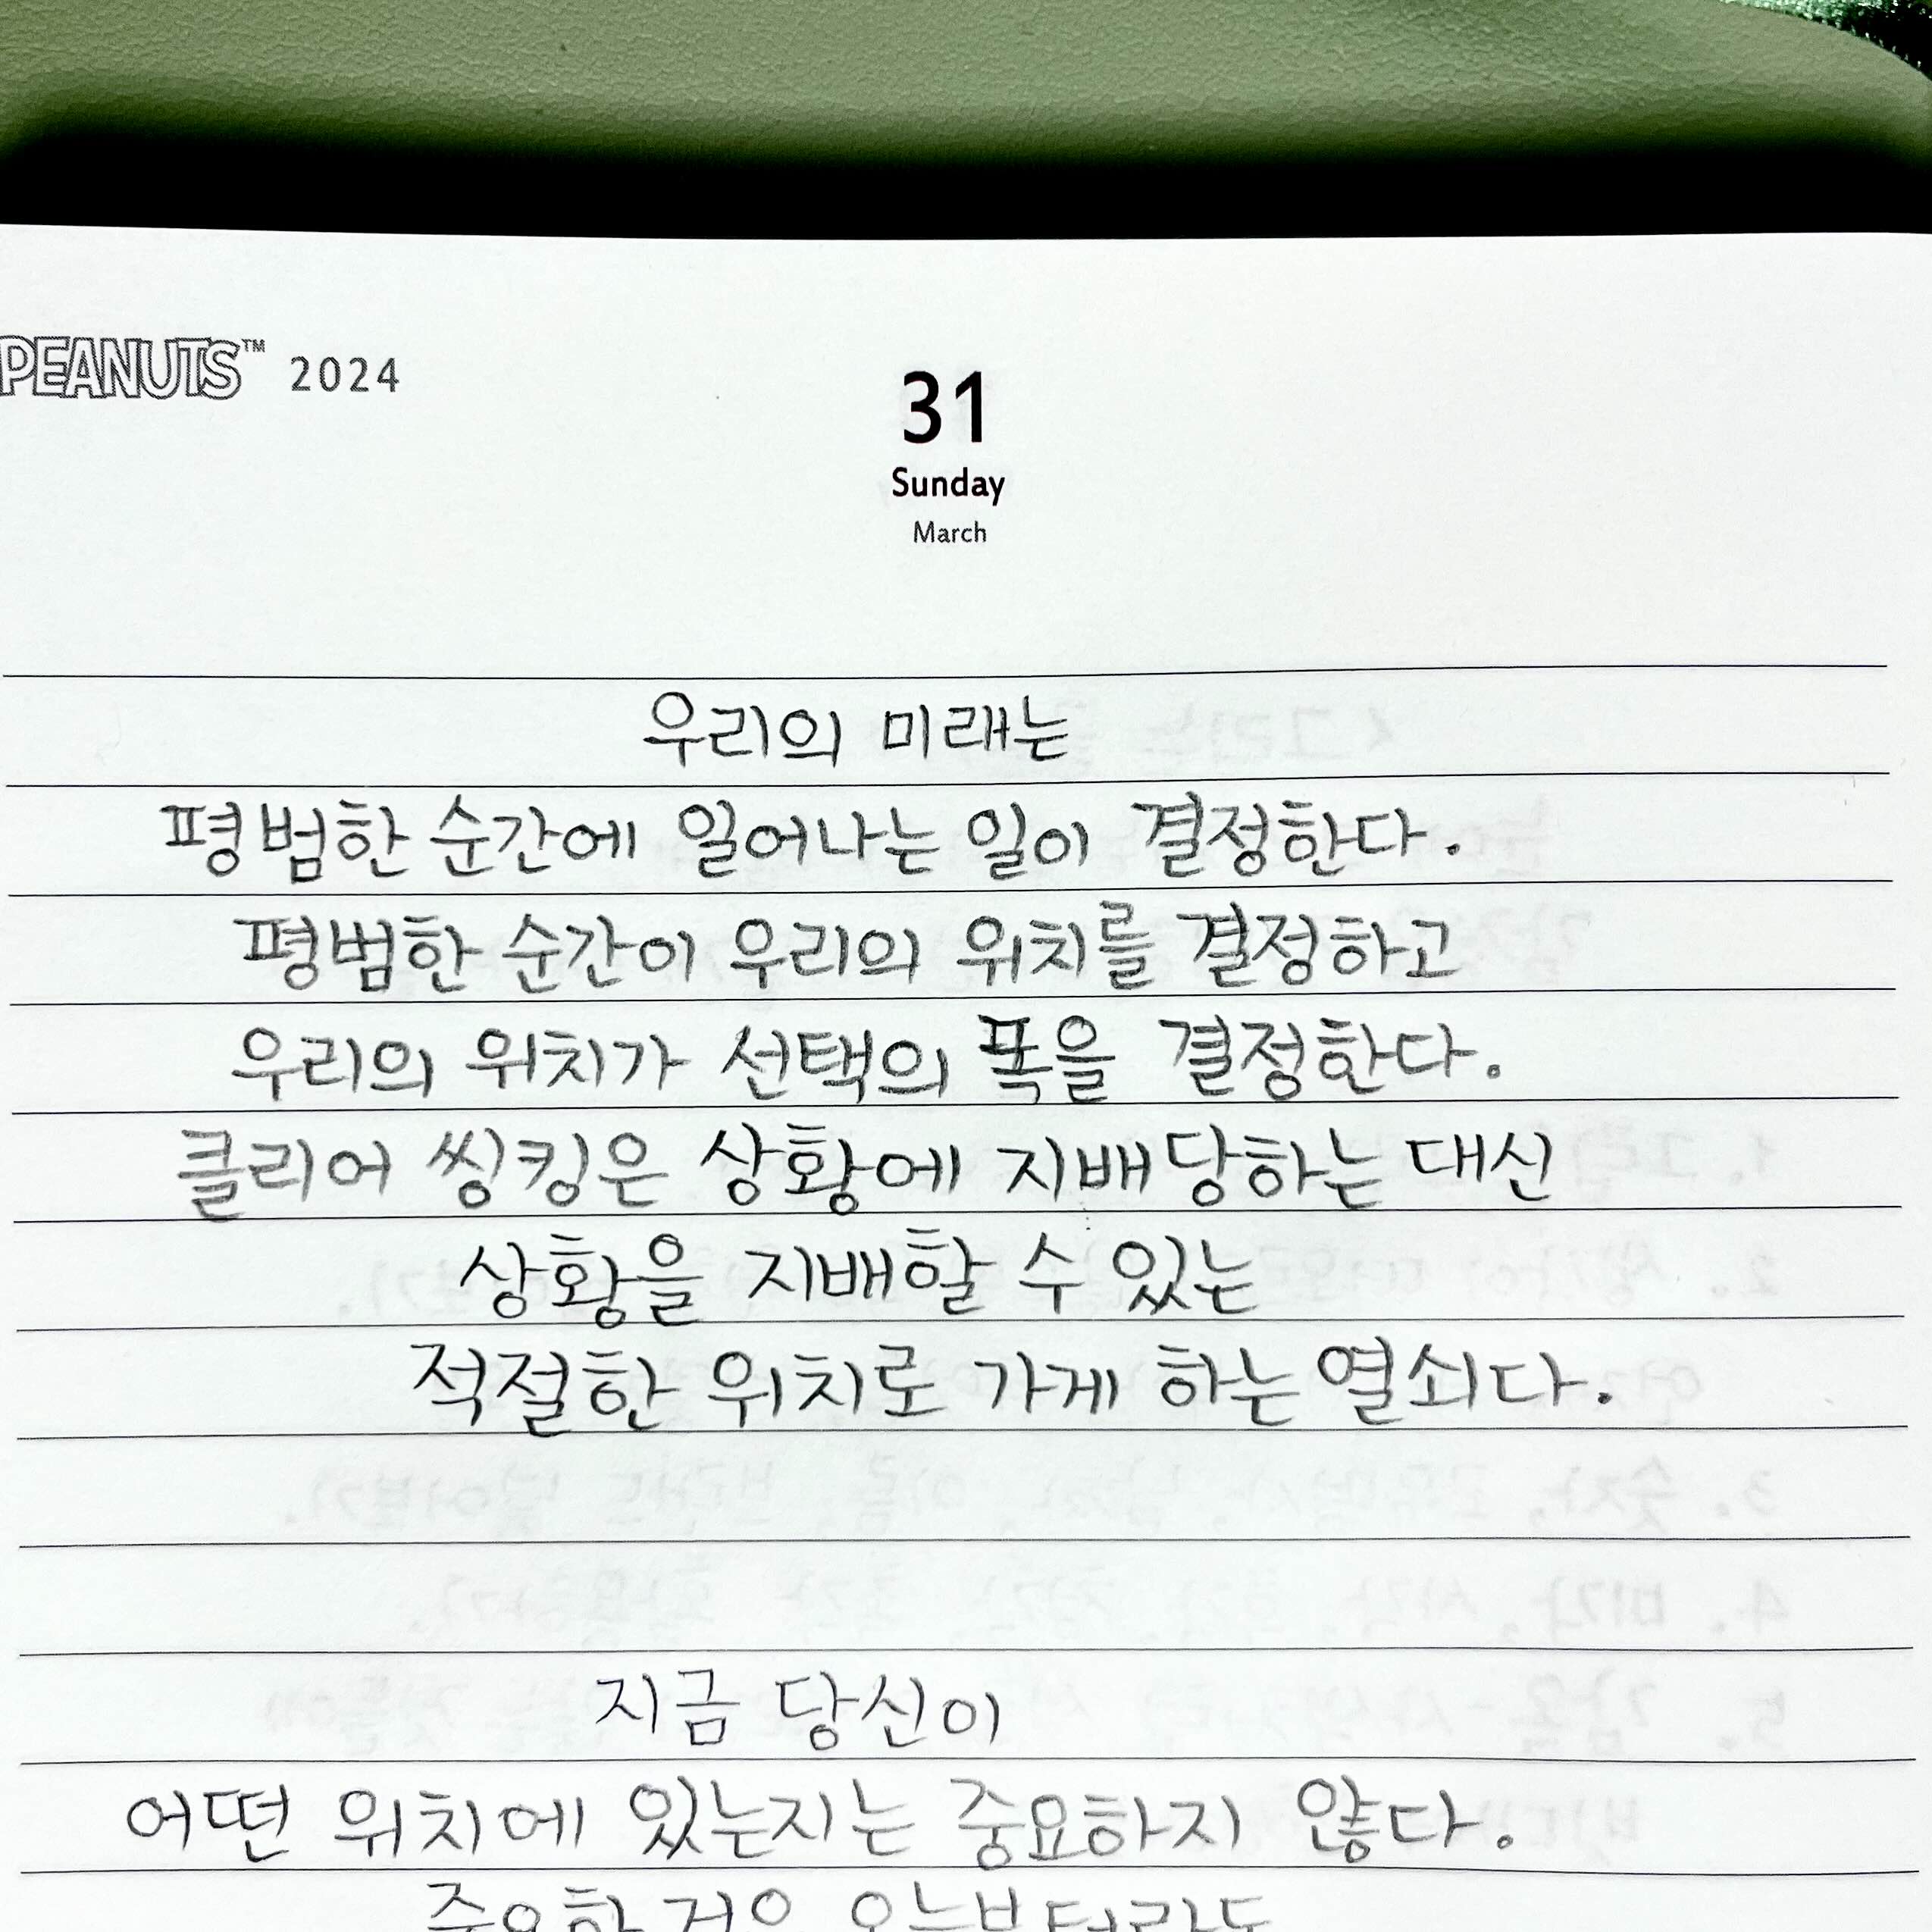 PEANUTS™ 2024
31
Sunday
March
우리의 미래는
평범한 순간에 일어나는 일이 결정한다.
평범한 순간이 우리의 위치를 결정하고
우리의 위치가 선택의 폭을 결정한다.
클리어 씽킹은 상황에 지배당하는 대신
상황을 지배할 수 있는
적절한 위치로 가게 하는 열쇠다.
지금 당신이
어떤 위치에 있는지는 중요하지 않다.
중요한 것은 오늘부터라도